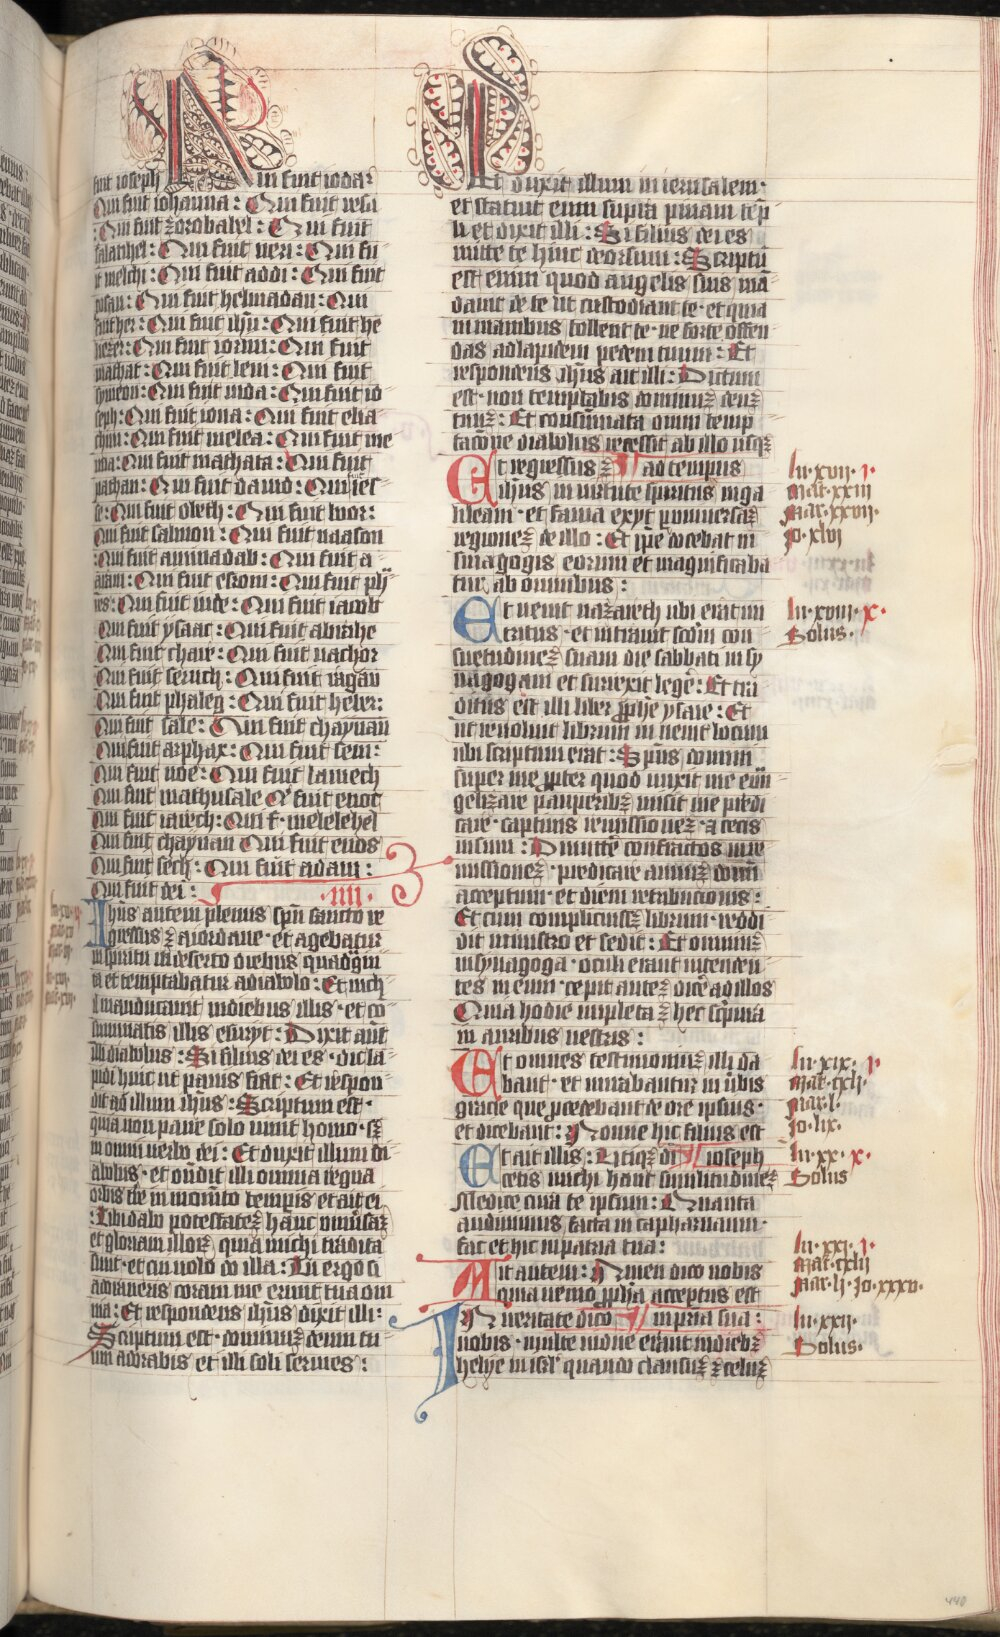 fuit ioseph Qui fuit ioda:
Qui fuit iohanna: Qui fuit resa
: Qui fuit zorobabel: Qui fuit
salathel: Qui fuit neri: Qui fu
it melchi: Qui fuit addi: Qui fuit
cosan: Qui fuit helmadan: Qui
fuit her: Qui fuit ihu: Qui fuit he
liezer: Qui fuit iorim: Qui fuit
mathat: Qui fuit leui: Qui fuit
symeon: Qui fuit iuda: Qui fuit io
seph: Qui fuit iona: Qui fuit elia
chim: Qui fuit melea: Qui fuit me
nna: Qui fuit mathata: Qui fuit
nathan: Qui fuit dauid: Qui fuit ies
se: Qui fuit obeth: Qui fuit boor:
Qui fuit salmon: Qui fuit naason
Qui fuit aminadab: Qui fuit a
aram: Qui fuit esrom: Qui fuit pha
res: Qui fuit iude: Qui fuit iacob
Qui fuit ysaac: Qui fuit abrahe
Qui fuit thare: Qui fuit nachor
Qui fuit seruch: Qui fuit ragau
Qui fuit phaleg: Qui fuit heber:
Qui fuit sale: Qui fuit chaynan
Qui fuit arphax: Qui fuit sem:
Qui fuit noe: Qui fuit lamech
Qui fuit mathusale Q fuit enoc
Qui fuit iarech: Qui f· melelehel
Qui fuit chaynan Qui fuit enos
Qui fuit sech: Qui fuit adam:
Qui fuit dei: ·IIII·
Ihus autem plenus spu sancto re
gressus ē a iordane· et agebatur
in spiritu in deserto diebus quadragin
ta et temptabatur a diabolo: Et nich
il manducauit in diebus illis· et co
summatis illis esuryt: Dixit aut
illi diabolus: Si filius dei es· dic la
pidi huic ut panis fiat: Et respon
dit ad illum ihus: Scriptum est·
quia non pane solo uiuit homo· sz
in omni uerbo dei: Et duxit illum di
abolus· et ondit illi omnia regna
orbis tre in momento temporis et ait ei
: Tibi dabo potestatez hanc uniusaz
et gloriam illorz quia michi tradita
sunt· et cui uolo do illa: Tu ergo si
adoraueris coram me erunt tua om
nia: Et respondens ihus dixit illi:
Scriptum est· dominuz deum tu
um adorabis et illi soli seruies:
Et duxit illum in ierusalem·
et statuit eum supra pinam tep
li et dixit illi: Si filius dei es
mitte te hinc deorsum: Scriptu
est enim quod angelis suis ma
dauit de te ut custodiant te· et quia
in manibus tollent te· ne forte offen
das ad lapidem pedem tuum: Et
respondens ihus ait illi: Dictum
est· non temptabis dominuz deuz
tuuz: Et consumata omni temp
tacone diabolus recessit ab illo usqz
Et regressus ē ad tempus
ihus in uirtute spiritus in ga
lileam· et fama exyt p uniuersaz
regionez de illo: Et ipe docebat in
sinagogis eorum et magnificaba
tur ab omnibus:
Et uenit nazareth ubi erat nu
tritus· et intrauit scdm con
suetudinez suam die sabbati in sy
nagogam et surrexit lege: Et tra
ditus est illi liber prophe ysaie: Et
ut reuoluit librum in uenit locum
ubi scriptum erat: Spus domini
super me propter quod unxit me euan
gelizare pauperibz misit me predi
care· captiuis remissionez· a cecis
uisum: Dimitte confractos in re
missionez· predicare annuz domi
acceptum· et diem retribucionis:
Et cum complicuissz librum· reddi
dit ministro et sedit: Et omniuz
in synagoga· oculi erant intenden
tes in eum· cepit autez dice ad illos
Quia hodie impleta ē hec scptura
in auribus uestris:
Et omnes testimoniuz illi da
bant· et mirabantur in uerbis
gracie que procedebant de ore ipsius·
et dicebant: Nonne hic filius est
Et ait illis: Utiqz di ioseph
cetis michi hanc similitudinez
Medice cura te ipsum: Quanta
audiuimus facta in capharnaum·
fac et hic in patria tua:
Ait autem: Amen dico uobis
quia nemo propha acceptus est
In ueritate dico in patria sua:
uobis· multe uidue erant in diebz
helye in isrl quando clausuz ē celuz
lu·xvii· I·
Mat·xxiii
Mar·xxvii·
Jo·xlvi
lu·xviii· x·
Solus·
lu·xix· I·
Mat·cxli·
Mar·l·
Jo·lix·
lu·xx· x·
Solus
lu·xxi· I·
Mat·cxlii
Mar·li·Jo·xxxv·
lu·xxii·
Solus·
440